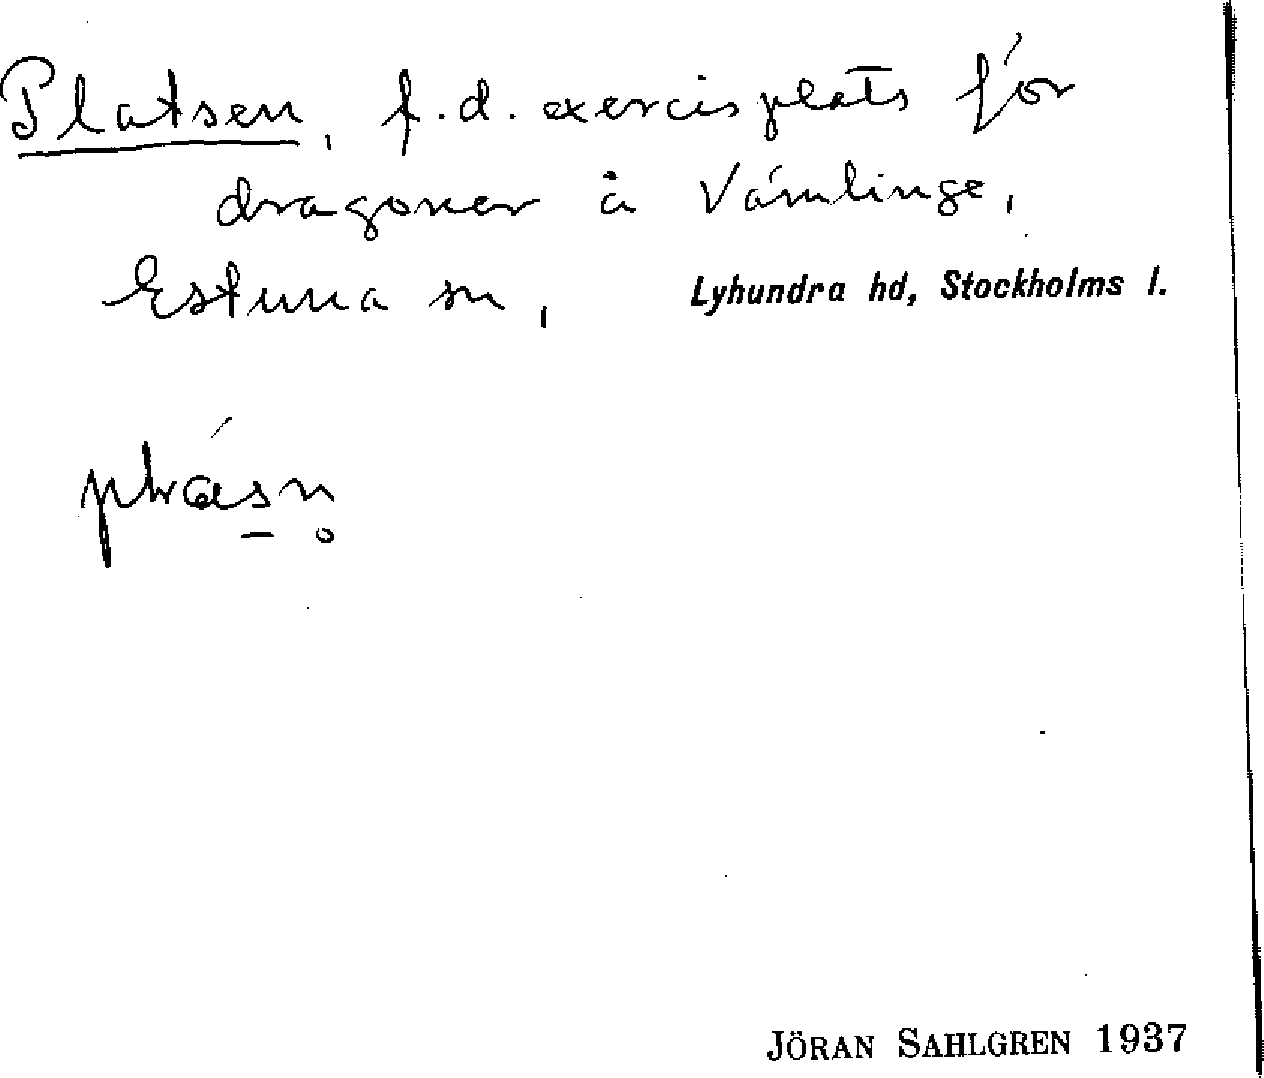 Platsen, f.d. exercisplats för
dragoner å Vämlinge,
Estuna sn, Lyhundra hd, Stockholms l.
JÖRAN SAHLGREN 1937